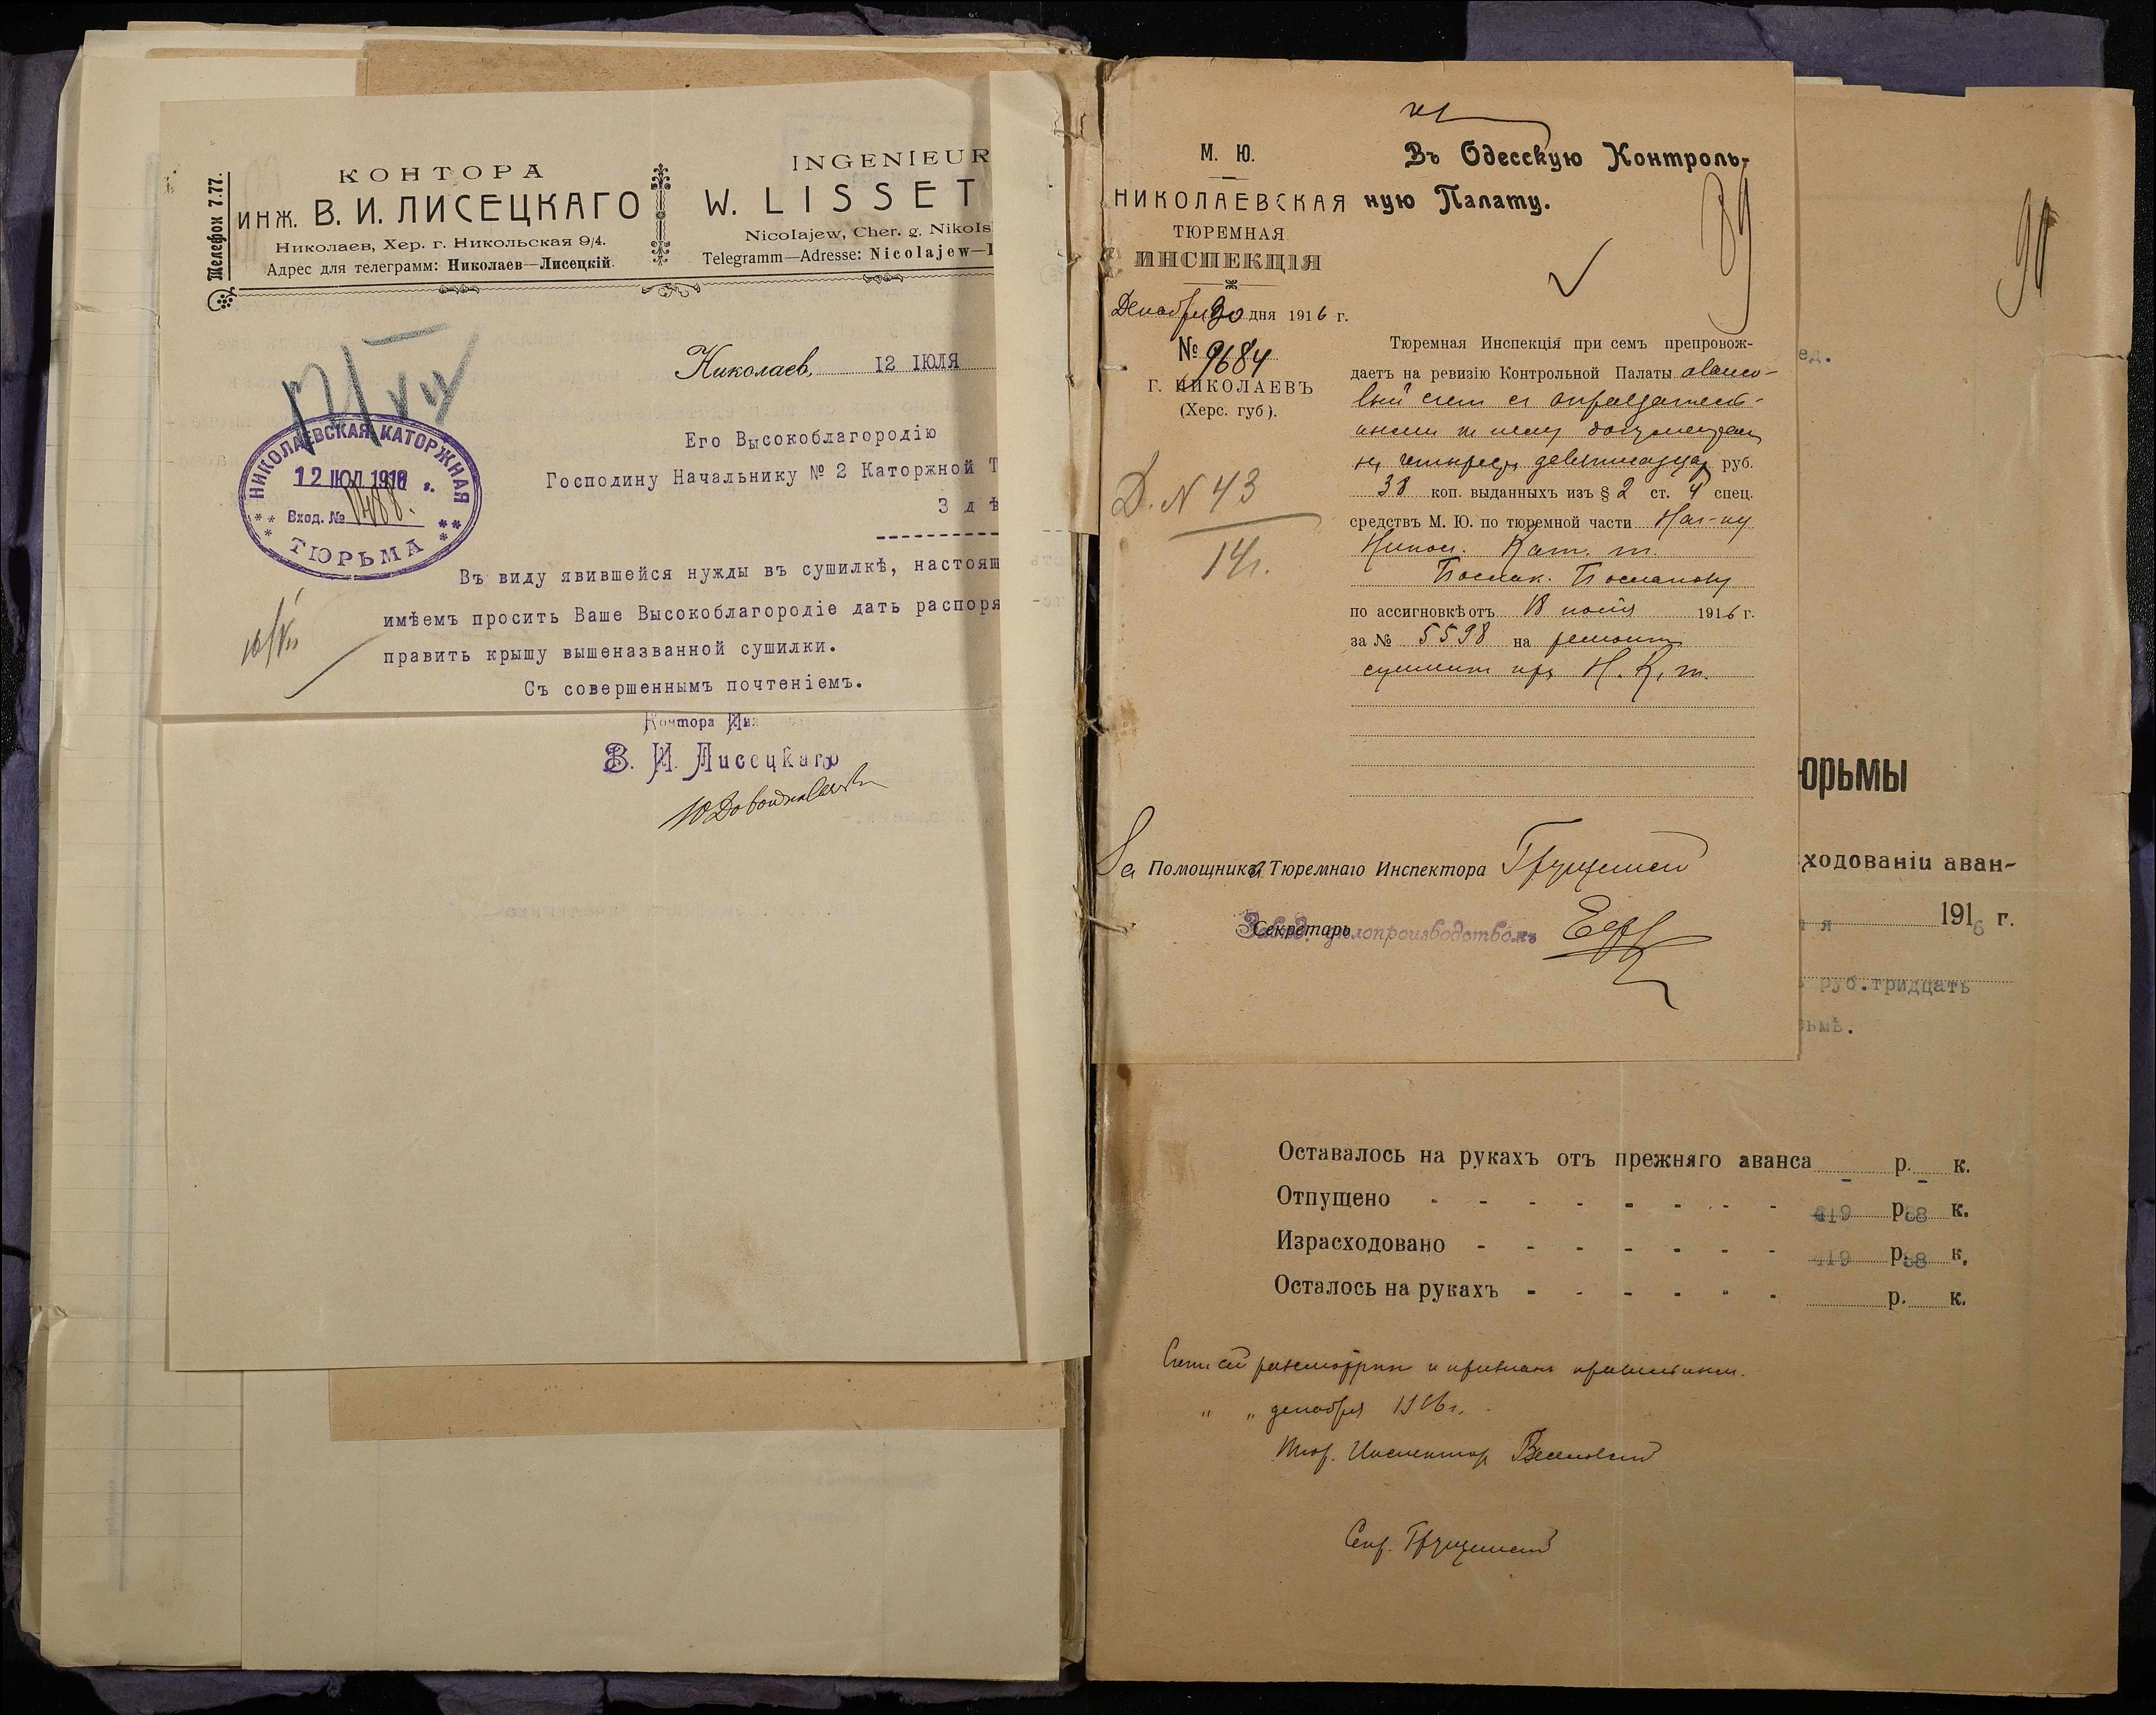 Телефон 7.77.
КОНТОРА
ИНЖ. В. И. ЛИСЕЦКАГО
Николаев, Хер. г. Никольская 9/4.
Адрес для телеграмм: Николаев—Лисецкій.
INGENIEUR
W. LISSET
Nicolajew, Cher. g. Nikols
Telegramm—Adresse: Nicolajew—
Николаев, 12 ІЮЛЯ
НИКОЛАЕВСКАЯ КАТОРЖНАЯ
12 ІЮЛ 1916 г.
Вход. №
ТЮРЬМА
Его Высокоблагородію
Господину Начальнику № 2 Каторжной Т
Здѣ
Въ виду явившейся нужды въ сушилкѣ, настоящ
имѣемъ просить Ваше Высокоблагородіе дать распоря
править крышу вышеназванной сушилки.
Съ совершеннымъ почтеніемъ.
Контора Ин
В. И. Лисецкаго
М. Ю.
НИКОЛАЕВСКАЯ
ТЮРЕМНАЯ
ИНСПЕКЦІЯ
Декабря 30 дня 1916 г.
№ 9684
Г. НИКОЛАЕВЪ
(Херс. губ).
Д. N 43
14г.
Въ Одесскую Контроль-
ную Палату.
89
Тюремная Инспекція при семъ препровож-
даетъ на ревизію Контрольной Палаты авансо-
вый счет с оправдатель-
ными к нему документами
на четыреста девятнадцать руб.
38 коп. выданныхъ изъ § 2 ст. 4 спец.
средствъ М. Ю. по тюремной части Нач-ку
Никол. Кат. т.
по ассигновкѣ отъ 18 1916 г.
за № 5598 на ремонт
сушилки при Н. К. т.
За Помощника Тюремнаго Инспектора
Секретарь
Завѣд. дѣлопроизводствомъ
90
ед.
юрьмы
ходованіи аван-
я 1916 г.
руб. тридцать
ьмѣ.
Оставалось на рукахъ отъ прежняго аванса - р. - к.
Отпущено - - - - - - - - 419 р. 38 к.
Израсходовано - - - - - - - 419 р. 38 к.
Осталось на рукахъ - - - - - - р. к.
Счет сей разсмотрен и признан правильным.
" " декабря 1916 г.
Тюр. Инспектор
Секр.